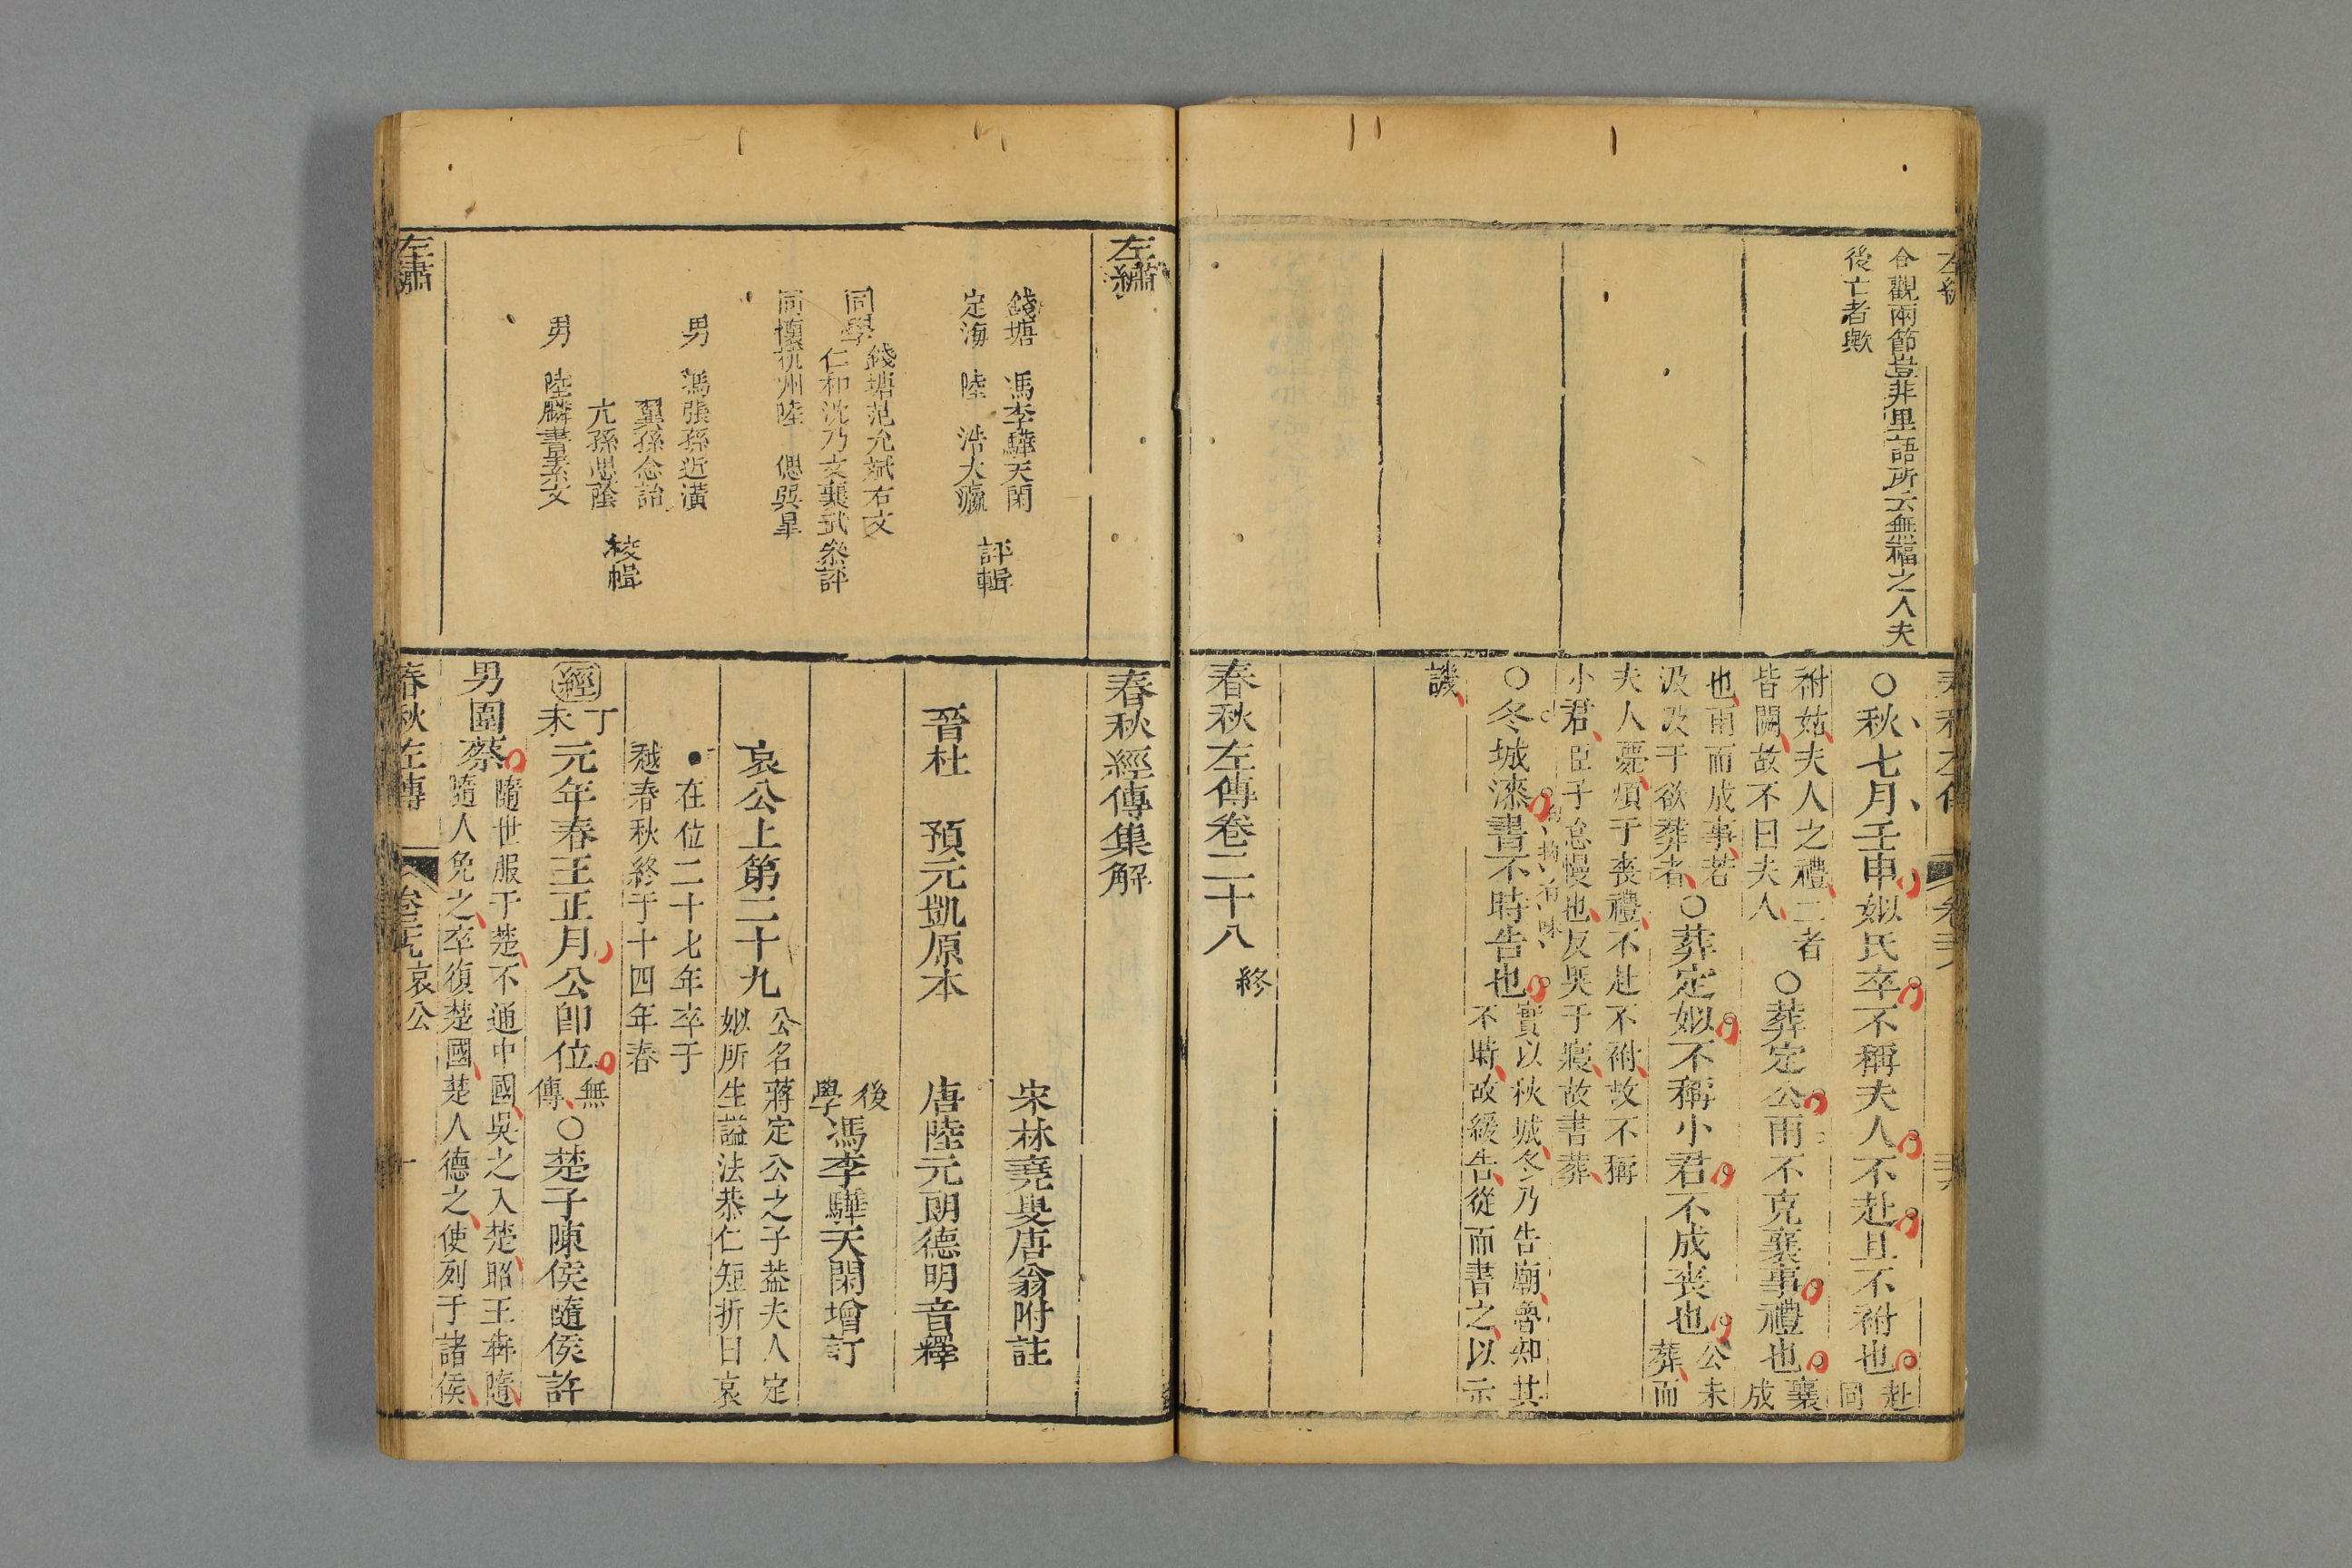 合觀兩節豈非里語所云無福之人夫
後亡者歟
○秋七月壬申姒氏卒不稱夫人不赴且不祔也赴同
祔姑夫人之禮二者
皆闕故不曰夫人
○葬定公雨不克襄事禮也襄成
也雨而成事若
汲汲于欲葬者
○葬定姒不稱小君不成喪也公未葬而
夫人薨煩于喪禮不赴不祔故不稱
小君臣子怠慢也反哭于寢故書葬
○冬城漆書不時告也
實以秋城冬乃告廟魯知其
不時故緩告從而書之以示
譏
春秋左傳卷二十八 終
左繡
錢塘 馮李驊天閑
定海 陸浩大瀛
評輯
同學
錢塘范允斌右文
仁和沈乃文襄武
同懷杭州陸偲巽皐
叅評
男 馮張孫近潢
翼孫念詒
亢孫思蔭
男 陸麟書素文
校輯
春秋經傳集解
宋林堯叟唐翁附註
晉杜 預元凱原本
唐陸元朗德明音釋
後學馮李驊天閑增訂
哀公上第二十九
公名蔣定公之子葢夫人定
姒所生謚法恭仁短折曰哀
●在位二十七年卒于
越春秋終于十四年春
經 丁未 元年春王正月公卽位無傳○楚子陳侯隨侯許
男圍蔡
隨世服于楚不通中國吳之入楚昭王奔隨
隨人免之卒復楚國楚人德之使列于諸侯
左繡
春秋左傳
哀公